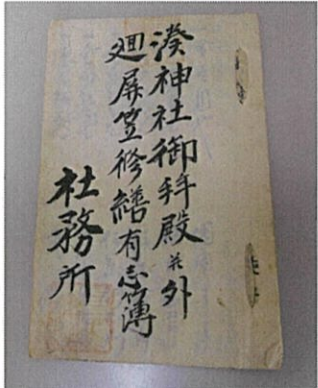 湊神社御拜殿並外
廻屏笠修繕有志簿
社務所